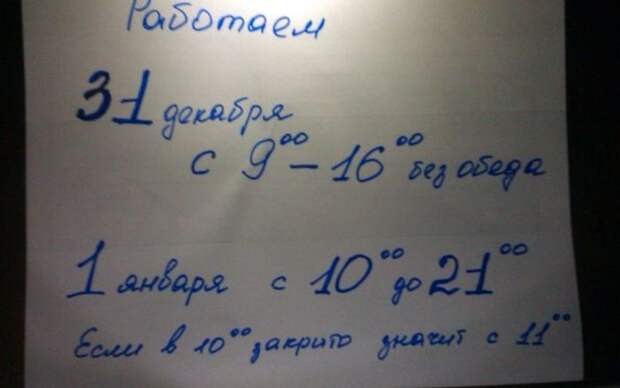 Работаем
31 декабря
с 9⁰⁰ – 16⁰⁰ без обеда
1 января с 10⁰⁰ до 21⁰⁰
Если в 10⁰⁰ закрито значит с 11⁰⁰